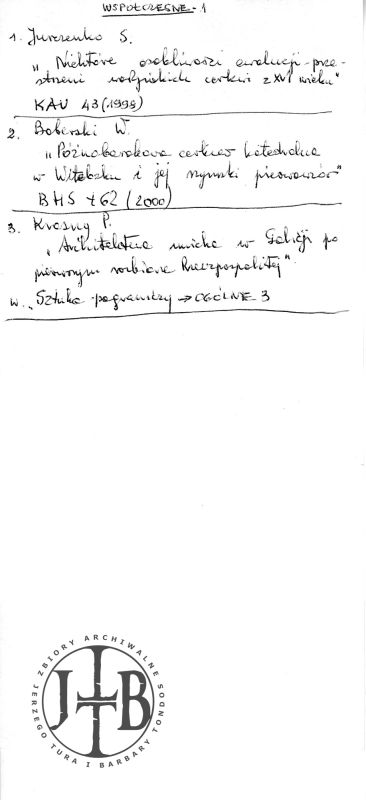 WSPÓŁCZESNE - 1
1. Jurczenko S.
„Niektóre osobliwości ewolucji prze-
strzeni wołyńskich cerkwi z XVI wieku"
KAU 43 (1998)
2. Boberski W.
„Późnobarokowa cerkiew katedralna
w Witebsku i jej rzymski pierwowzór"
BHS 62 (2000)
3. Krasny P.
„Architektura unicka w Galicji po
pierwszym rozbiorze Rzeczpospolitej"
w. „Sztuka pograniczy → OGÓLNE 3
ZBIORY ARCHIWALNE
JERZEGO TURA I BARBARY TONDOS
JTB